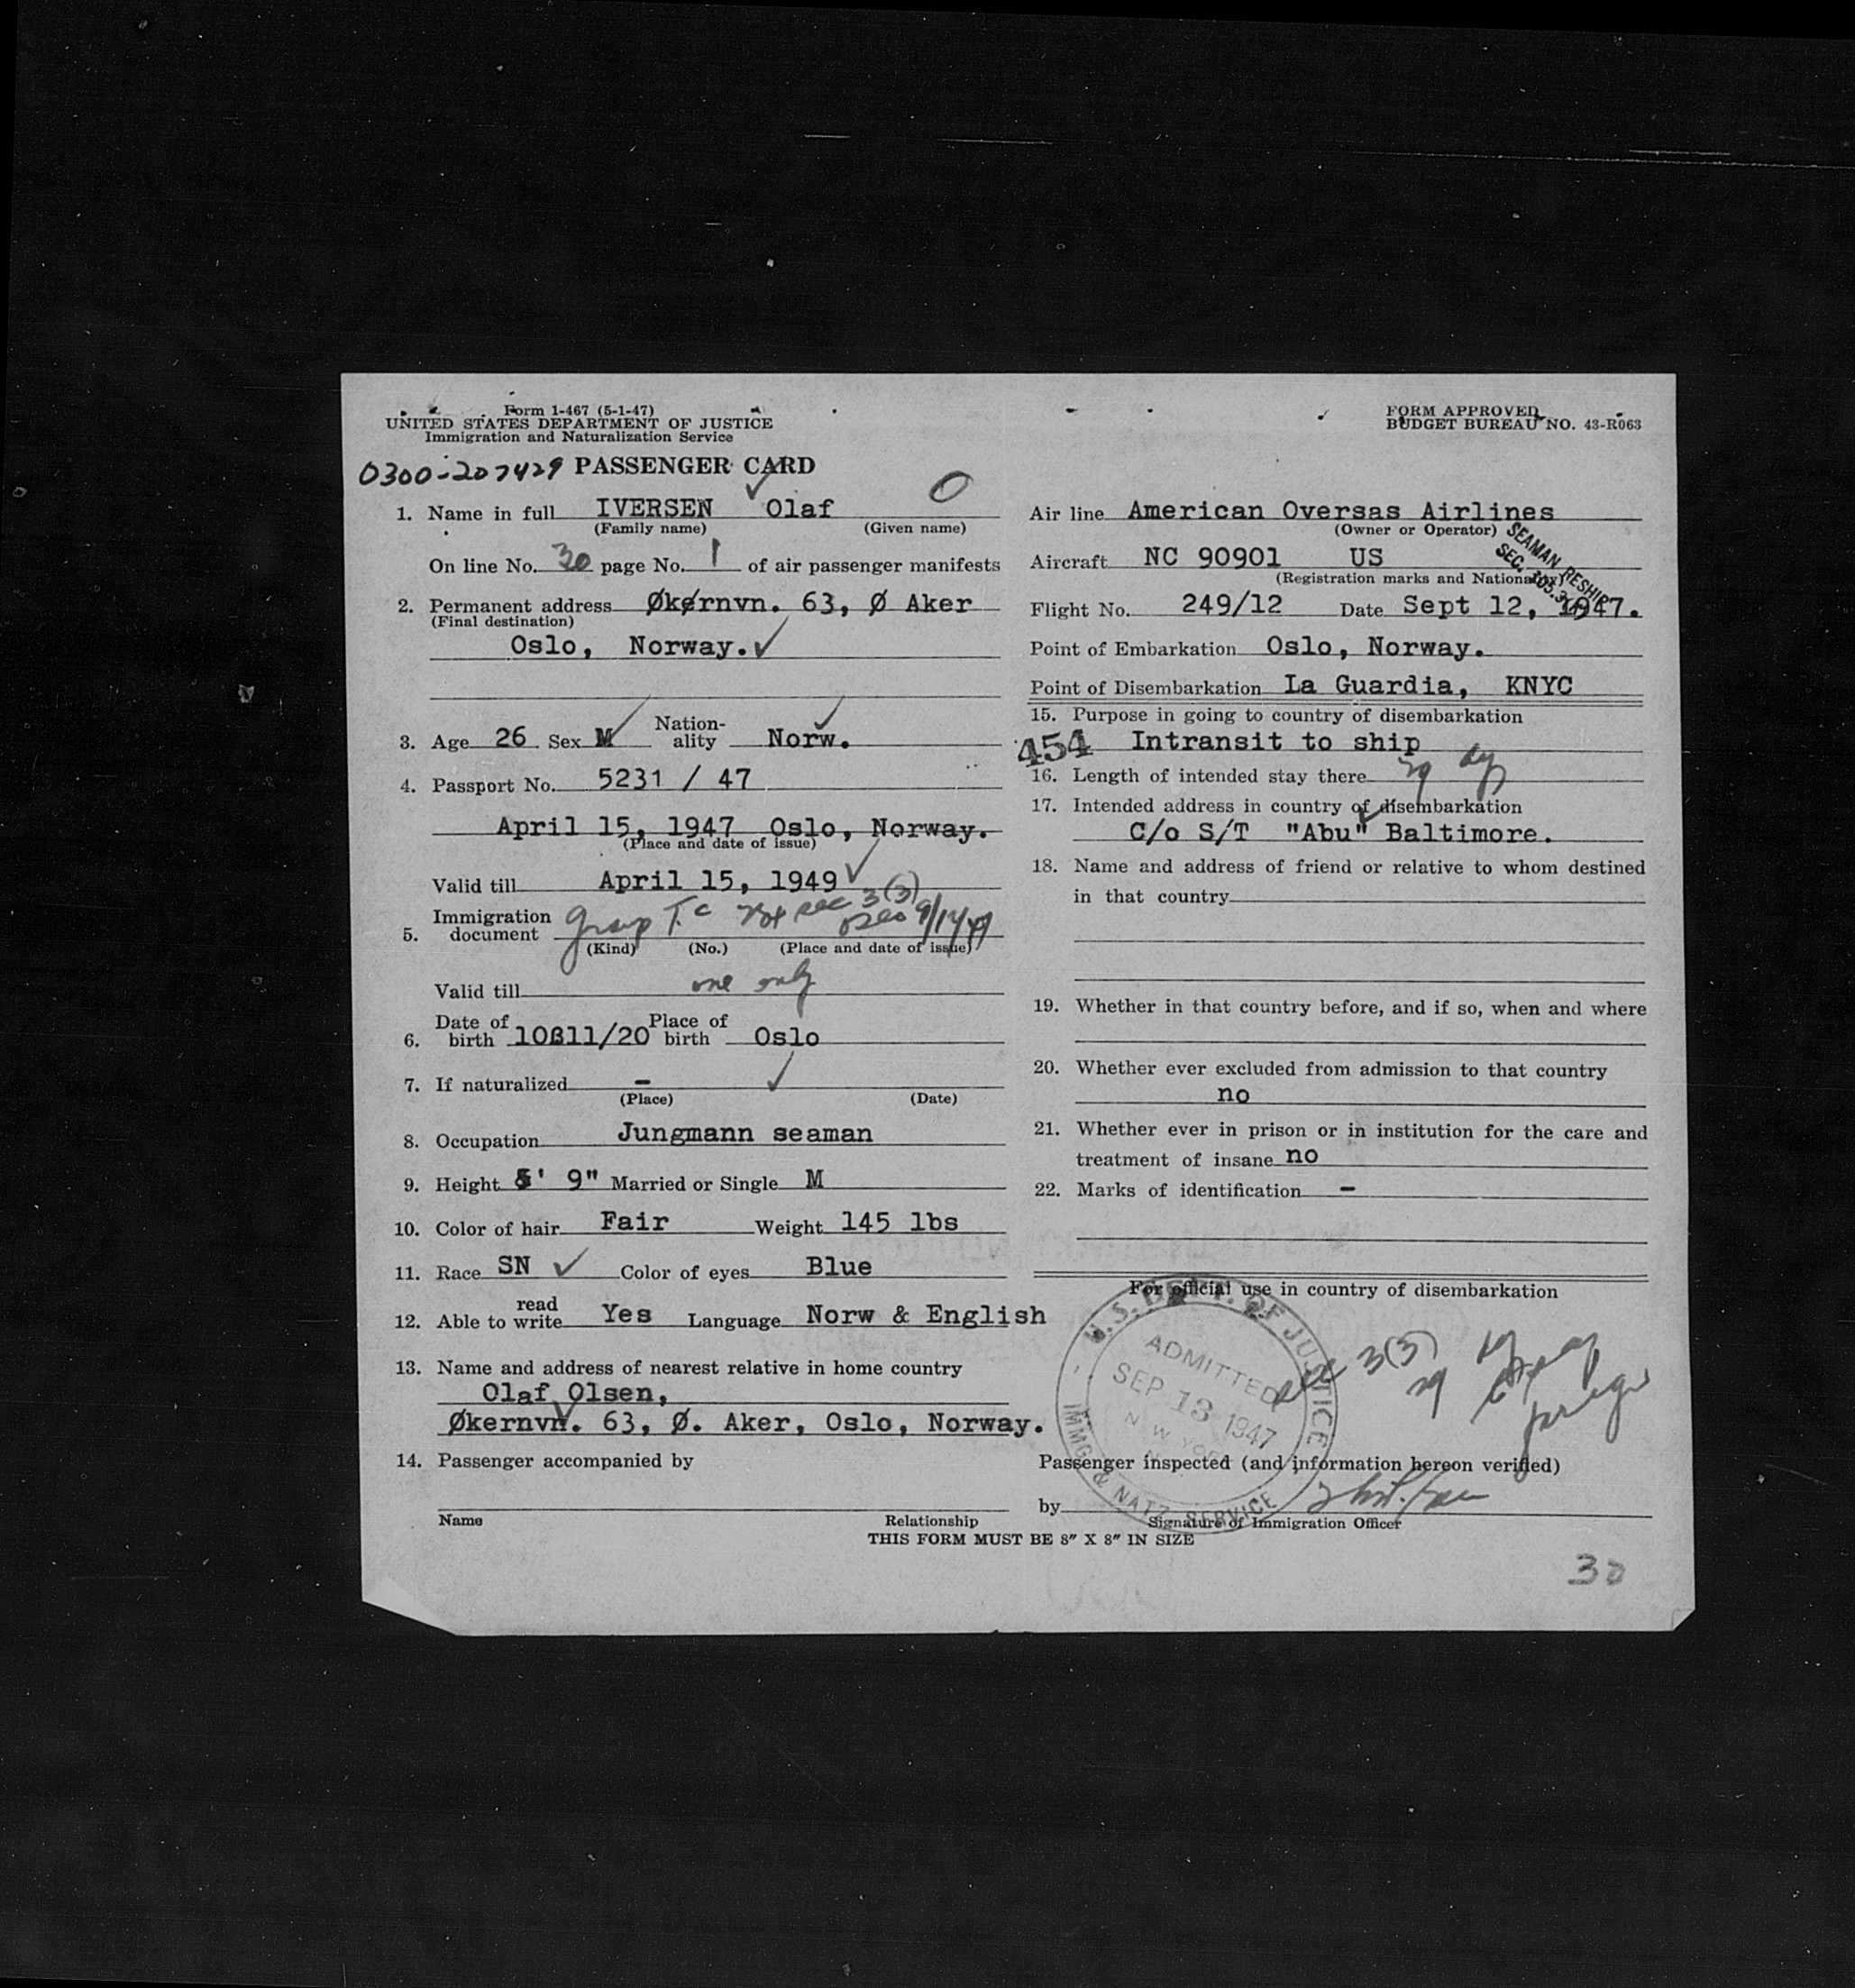 Form 1-467 (5-1-47)
UNITED STATES DEPARTMENT OF JUSTICE
Immigration and Naturalization Service
FORM APPROVED
BUDGET BUREAU NO. 43-R063
0300-207429 PASSENGER CARD
1. Name in full IVERSEN Olaf O
(Family name) (Given name)
On line No. 30 page No. 1 of air passenger manifests
2. Permanent address Økernvn. 63, Ø Aker
(Final destination)
Oslo, Norway.
3. Age 26 Sex M Nation-ality Norw.
4. Passport No. 5231 / 47
April 15, 1947 Oslo, Norway.
(Place and date of issue)
Valid till April 15, 1949
5. Immigration document Group T.C. sec 3(3) 9/12/47
(Kind) (No.) (Place and date of issue)
Valid till one only
6. Date of birth 10ß11/20 Place of birth Oslo
7. If naturalized -
(Place) (Date)
8. Occupation Jungmann seaman
9. Height 5' 9" Married or Single M
10. Color of hair Fair Weight 145 lbs
11. Race SN Color of eyes Blue
12. Able to read write Yes Language Norw & English
13. Name and address of nearest relative in home country
Olaf Olsen,
Økernvn. 63, Ø. Aker, Oslo, Norway.
14. Passenger accompanied by
Name Relationship
Air line American Oversas Airlines
(Owner or Operator)
SEAMAN RESHIP
SEC. 105.3
Aircraft NC 90901 US
(Registration marks and Nationality)
Flight No. 249/12 Date Sept 12, 1947.
Point of Embarkation Oslo, Norway.
Point of Disembarkation La Guardia, KNYC
15. Purpose in going to country of disembarkation
454 Intransit to ship
16. Length of intended stay there 29 dys
17. Intended address in country of disembarkation
C/o S/T "Abu" Baltimore.
18. Name and address of friend or relative to whom destined
in that country
19. Whether in that country before, and if so, when and where
20. Whether ever excluded from admission to that country
no
21. Whether ever in prison or in institution for the care and
treatment of insane no
22. Marks of identification -
For official use in country of disembarkation
U.S. DEPT. OF JUSTICE
IMMG. & NATZ. SERVICE
ADMITTED
SEP 13 1947
NEW YORK
sec 3(3)
29
Passenger inspected (and information hereon verified)
by
Signature of Immigration Officer
THIS FORM MUST BE 8" X 8" IN SIZE
30